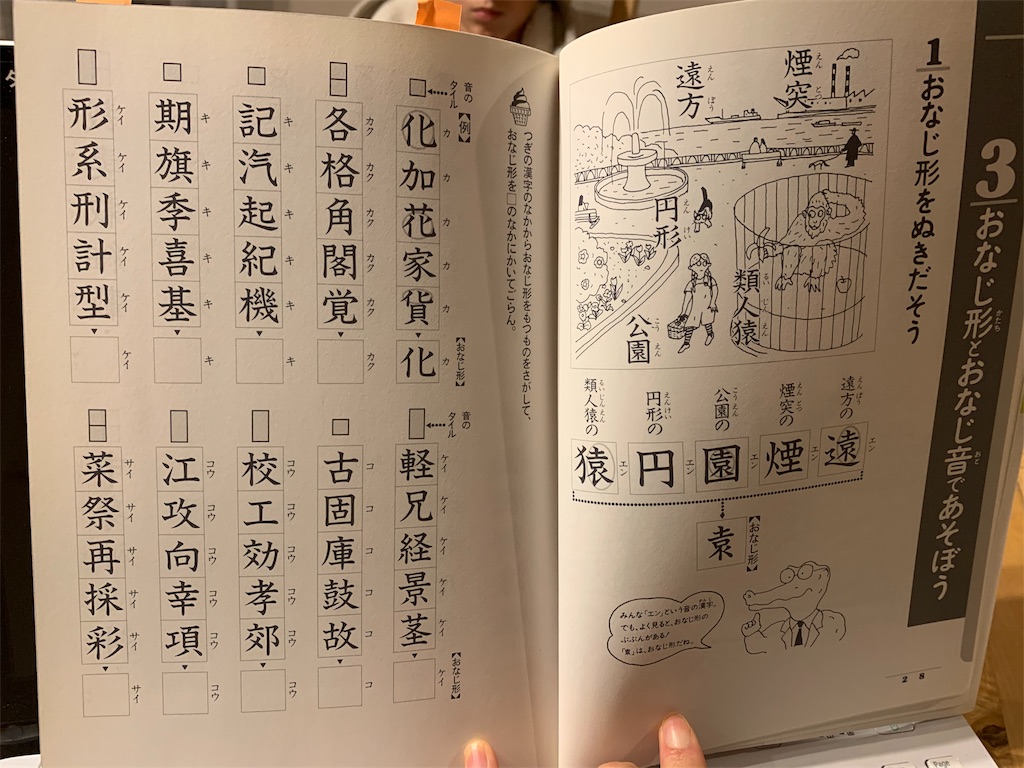 3 おなじ形とおなじ音であそぼう
かたち
おと
1 おなじ形をぬきだそう
煙突
えんとつ
遠方
えんぽう
円形
えんけい
類人猿
るいじんえん
公園
こうえん
遠方の
えんぽう
遠
エン
煙突の
えんとつ
煙
エン
公園の
こうえん
園
エン
円形の
えんけい
円
エン
類人猿の
るいじんえん
猿
エン
【おなじ形】
袁
みんな「エン」という音の漢字。
かんじ
でも、よく見ると、おなじ形の
ぶぶんがある!
「袁」は、おなじ形だね。
28
つぎの漢字のなかからおなじ形をもつものをさがして、
おなじ形を□のなかにかいてごらん。
音のタイル
【例】
化 加 花 家 貨
カ カ カ カ カ
【おなじ形】
化
カ
各 格 角 閣 覚
カク カク カク カク カク
カク
記 汽 起 紀 機
キ キ キ キ キ
キ
期 旗 季 喜 基
キ キ キ キ キ
キ
形 系 刑 計 型
ケイ ケイ ケイ ケイ ケイ
ケイ
音のタイル
軽 兄 経 景 茎
ケイ ケイ ケイ ケイ ケイ
【おなじ形】
ケイ
古 固 庫 鼓 故
コ コ コ コ コ
コ
校 工 効 孝 郊
コウ コウ コウ コウ コウ
コウ
江 攻 向 幸 項
コウ コウ コウ コウ コウ
コウ
菜 祭 再 採 彩
サイ サイ サイ サイ サイ
サイ
Page